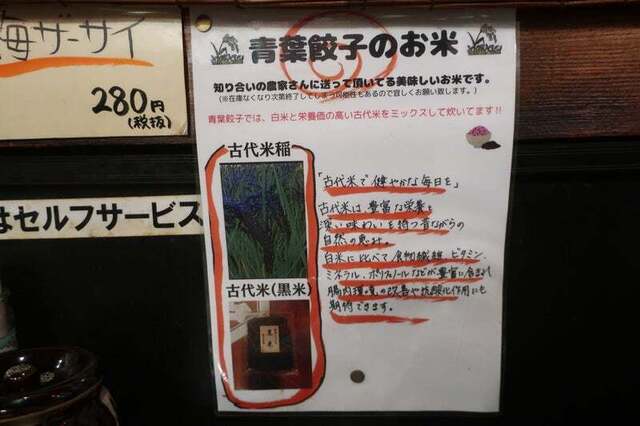 海ザーサイ
280円
(税抜)
はセルフサービス
青葉餃子のお米
知り合いの農家さんに送って頂いてる美味しいお米です。
(※在庫なくなり次第終了してしまう可能性もあるので宜しくお願い致します。)
青葉餃子では、白米と栄養価の高い古代米をミックスして炊いてます!!
古代米稲
古代米(黒米)
「古代米で健やかな毎日を」
古代米は豊富な栄養と
深い味わいを持つ昔ながらの
自然の恵み。
白米に比べて食物繊維、ビタミン、
ミネラル、ポリフェノールなどが豊富に含まれ
腸内環境の改善や抗酸化作用にも
期待できます。